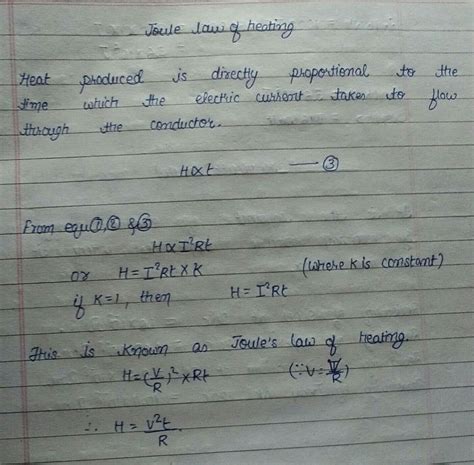 Joule law of heating
Heat produced is directly proportional to the
time which the electric current takes to flow
through the conductor.
H∝t —— ③
From equ①,② &③
H∝I²Rt
or H=I²Rt×K (where K is constant)
if K=1, then H=I²Rt
This is known as Joule's law of heating.
H=(V/R)²×Rt
∴ H=V²t/R